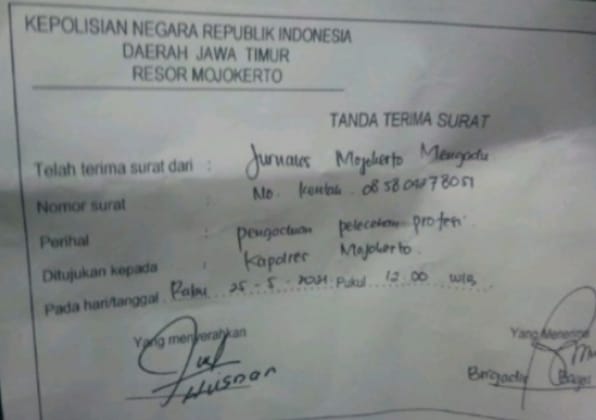 KEPOLISIAN NEGARA REPUBLIK INDONESIA
DAERAH JAWA TIMUR
RESOR MOJOKERTO
TANDA TERIMA SURAT
Telah terima surat dari : Jurnalis Mojokerto Mengadu
Nomor surat : No. kontak
Perihal : pengaduan pelecehan profesi
Ditujukan kepada : Kapolres Mojokerto.
Pada hari/tanggal Rabu 25-5-2021 Pukul 12.00 WIB
Yang menyerahkan
Yang Menerima
Husnan
Bagus